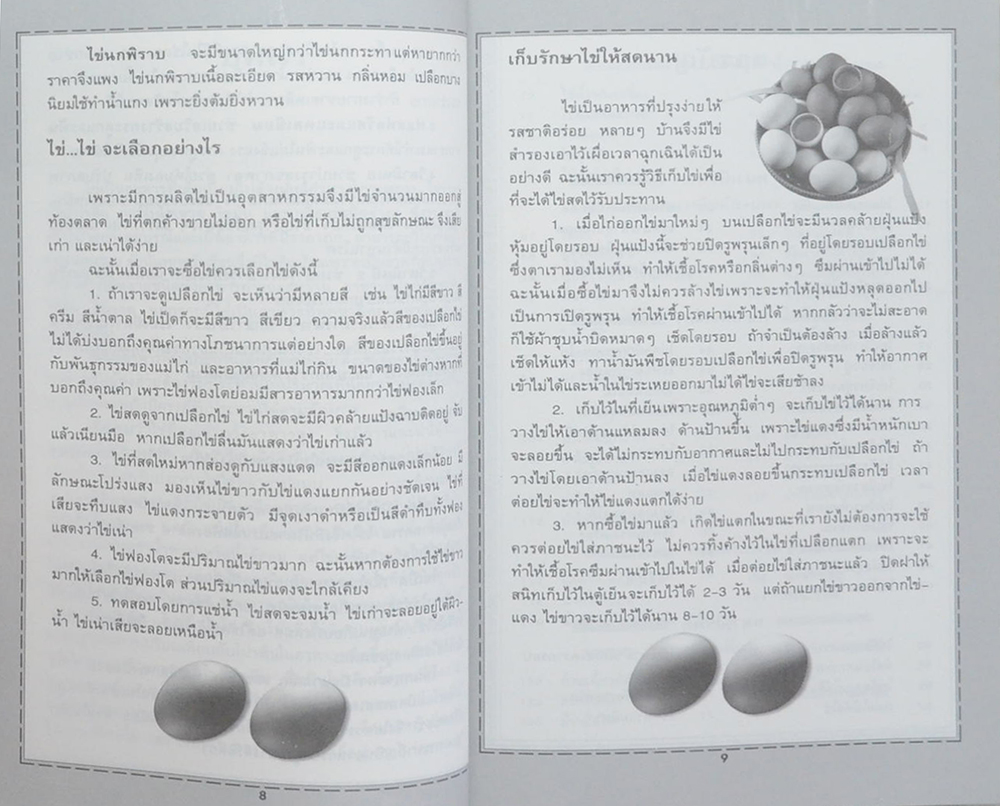 ไข่นกพิราบ จะมีขนาดใหญ่กว่าไข่นกกระทา แต่หายากกว่า
ราคาจึงแพง ไข่นกพิราบเนื้อละเอียด รสหวาน กลิ่นหอม เปลือกบาง
นิยมใช้ทำน้ำแกง เพราะยิ่งต้มยิ่งหวาน
ไข่...ไข่ จะเลือกอย่างไร
เพราะมีการผลิตไข่เป็นอุตสาหกรรมจึงมีไข่จำนวนมากออกสู่
ท้องตลาด ไข่ที่ตกค้างขายไม่ออก หรือไข่ที่เก็บไม่ถูกสุขลักษณะ จึงเสีย
เก่า และเน่าได้ง่าย
ฉะนั้นเมื่อเราจะซื้อไข่ควรเลือกไข่ดังนี้
1. ถ้าเราจะดูเปลือกไข่ จะเห็นว่ามีหลายสี เช่น ไข่ไก่มีสีขาว สี
ครีม สีน้ำตาล ไข่เป็ดก็จะมีสีขาว สีเขียว ความจริงแล้วสีของเปลือกไข่
ไม่ได้บ่งบอกถึงคุณค่าทางโภชนาการแต่อย่างใด สีของเปลือกไข่ขึ้นอยู่
กับพันธุกรรมของแม่ไก่ และอาหารที่แม่ไก่กิน ขนาดของไข่ต่างหากที่
บอกถึงคุณค่า เพราะไข่ฟองโตย่อมมีสารอาหารมากกว่าไข่ฟองเล็ก
2. ไข่สดดูจากเปลือกไข่ ไข่ไก่สดจะมีผิวคล้ายแป้งฉาบติดอยู่ จับ
แล้วเนียนมือ หากเปลือกไข่ลื่นมันแสดงว่าไข่เก่าแล้ว
3. ไข่ที่สดใหม่หากส่องดูกับแสงแดด จะมีสีออกแดงเล็กน้อย มี
ลักษณะโปร่งแสง มองเห็นไข่ขาวกับไข่แดงแยกกันอย่างชัดเจน ไข่ที่
เสียจะทึบแสง ไข่แดงกระจายตัว มีจุดเงาดำหรือเป็นสีดำทึบทั้งฟอง
แสดงว่าไข่เน่า
4. ไข่ฟองโตจะมีปริมาณไข่ขาวมาก ฉะนั้นหากต้องการใช้ไข่ขาว
มากให้เลือกไข่ฟองโต ส่วนปริมาณไข่แดงจะใกล้เคียง
5. ทดสอบโดยการแช่น้ำ ไข่สดจะจมน้ำ ไข่เก่าจะลอยอยู่ใต้ผิว-
น้ำ ไข่เน่าเสียจะลอยเหนือน้ำ
8
เก็บรักษาไข่ให้สดนาน
ไข่เป็นอาหารที่ปรุงง่ายให้
รสชาติอร่อย หลายๆ บ้านจึงมีไข่
สำรองเอาไว้เผื่อเวลาฉุกเฉินได้เป็น
อย่างดี ฉะนั้นเราควรรู้วิธีเก็บไข่เพื่อ
ที่จะได้ไข่สดไว้รับประทาน
1. เมื่อไก่ออกไข่มาใหม่ๆ บนเปลือกไข่จะมีนวลคล้ายฝุ่นแป้ง
หุ้มอยู่โดยรอบ ฝุ่นแป้งนี้จะช่วยปิดรูพรุนเล็กๆ ที่อยู่โดยรอบเปลือกไข่
ซึ่งตาเรามองไม่เห็น ทำให้เชื้อโรคหรือกลิ่นต่างๆ ซึมผ่านเข้าไปไม่ได้
ฉะนั้นเมื่อซื้อไข่มาจึงไม่ควรล้างไข่เพราะจะทำให้ฝุ่นแป้งหลุดออกไป
เป็นการเปิดรูพรุน ทำให้เชื้อโรคผ่านเข้าไปได้ หากกลัวว่าจะไม่สะอาด
ก็ใช้ผ้าชุบน้ำบิดหมาดๆ เช็ดโดยรอบ ถ้าจำเป็นต้องล้าง เมื่อล้างแล้ว
เช็ดให้แห้ง ทาน้ำมันพืชโดยรอบเปลือกไข่เพื่อปิดรูพรุน ทำให้อากาศ
เข้าไม่ได้และน้ำในไข่ระเหยออกมาไม่ได้ไข่จะเสียช้าลง
2. เก็บไว้ในที่เย็นเพราะอุณหภูมิต่ำๆ จะเก็บไข่ไว้ได้นาน การ
วางไข่ให้เอาด้านแหลมลง ด้านป้านขึ้น เพราะไข่แดงซึ่งมีน้ำหนักเบา
จะลอยขึ้น จะได้ไม่กระทบกับอากาศและไม่ไปกระทบกับเปลือกไข่ ถ้า
วางไข่โดยเอาด้านป้านลง เมื่อไข่แดงลอยขึ้นกระทบเปลือกไข่ เวลา
ต่อยไข่จะทำให้ไข่แดงแตกได้ง่าย
3. หากซื้อไข่มาแล้ว เกิดไข่แตกในขณะที่เรายังไม่ต้องการจะใช้
ควรต่อยไข่ใส่ภาชนะไว้ ไม่ควรทิ้งค้างไว้ในไข่ที่เปลือกแตก เพราะจะ
ทำให้เชื้อโรคซึมผ่านเข้าไปในไข่ได้ เมื่อต่อยไข่ใส่ภาชนะแล้ว ปิดฝาให้
สนิทเก็บไว้ในตู้เย็นจะเก็บไว้ได้ 2-3 วัน แต่ถ้าแยกไข่ขาวออกจากไข่-
แดง ไข่ขาวจะเก็บไว้ได้นาน 8-10 วัน
9